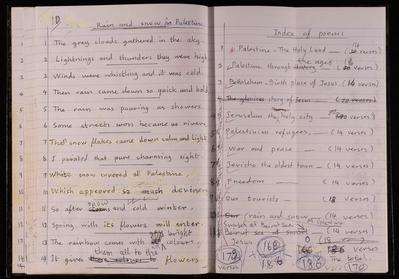 10 Rain and snow in Palestine
1 The gray clouds gathered in the sky.
2 Lightnings and thunders they were high
3 Winds were whistling and it was cold.
4 Then rain came down so quick and bold
5 The rain was pouring as showers
6 Some streets were became as rivers
7 The snow flakes came down calm and light
8 I that pure charming sight
9 White snow covered all Palestine
10 Which appeared so much
11 So after snow and cold winter.
12 Spring with its flowers will enter
13 The rainbow comes with bright colours.
14 It gives them all to the flowers
Index of poems
1 Palestine - The Holy Land - (14 verses)
2 Palestine through the ages (18 verses)
3 Bethlehem - Birth place of Jesus (16 verses)
4 The glorious story of (20 verses)
5 Jerusalem the holy city - verses)
Palestinian refugees - (14 verses)
War and peace - (14 verses)
Jericho the oldest town - (14 verses)
Freedom - (14 verses)
Our tourists - (18 verses)
rain and snow (14 verses)
Sunset at Beirut Sea
Beirut sea of
Jesus verses
170 verses
168
186
The total.
186